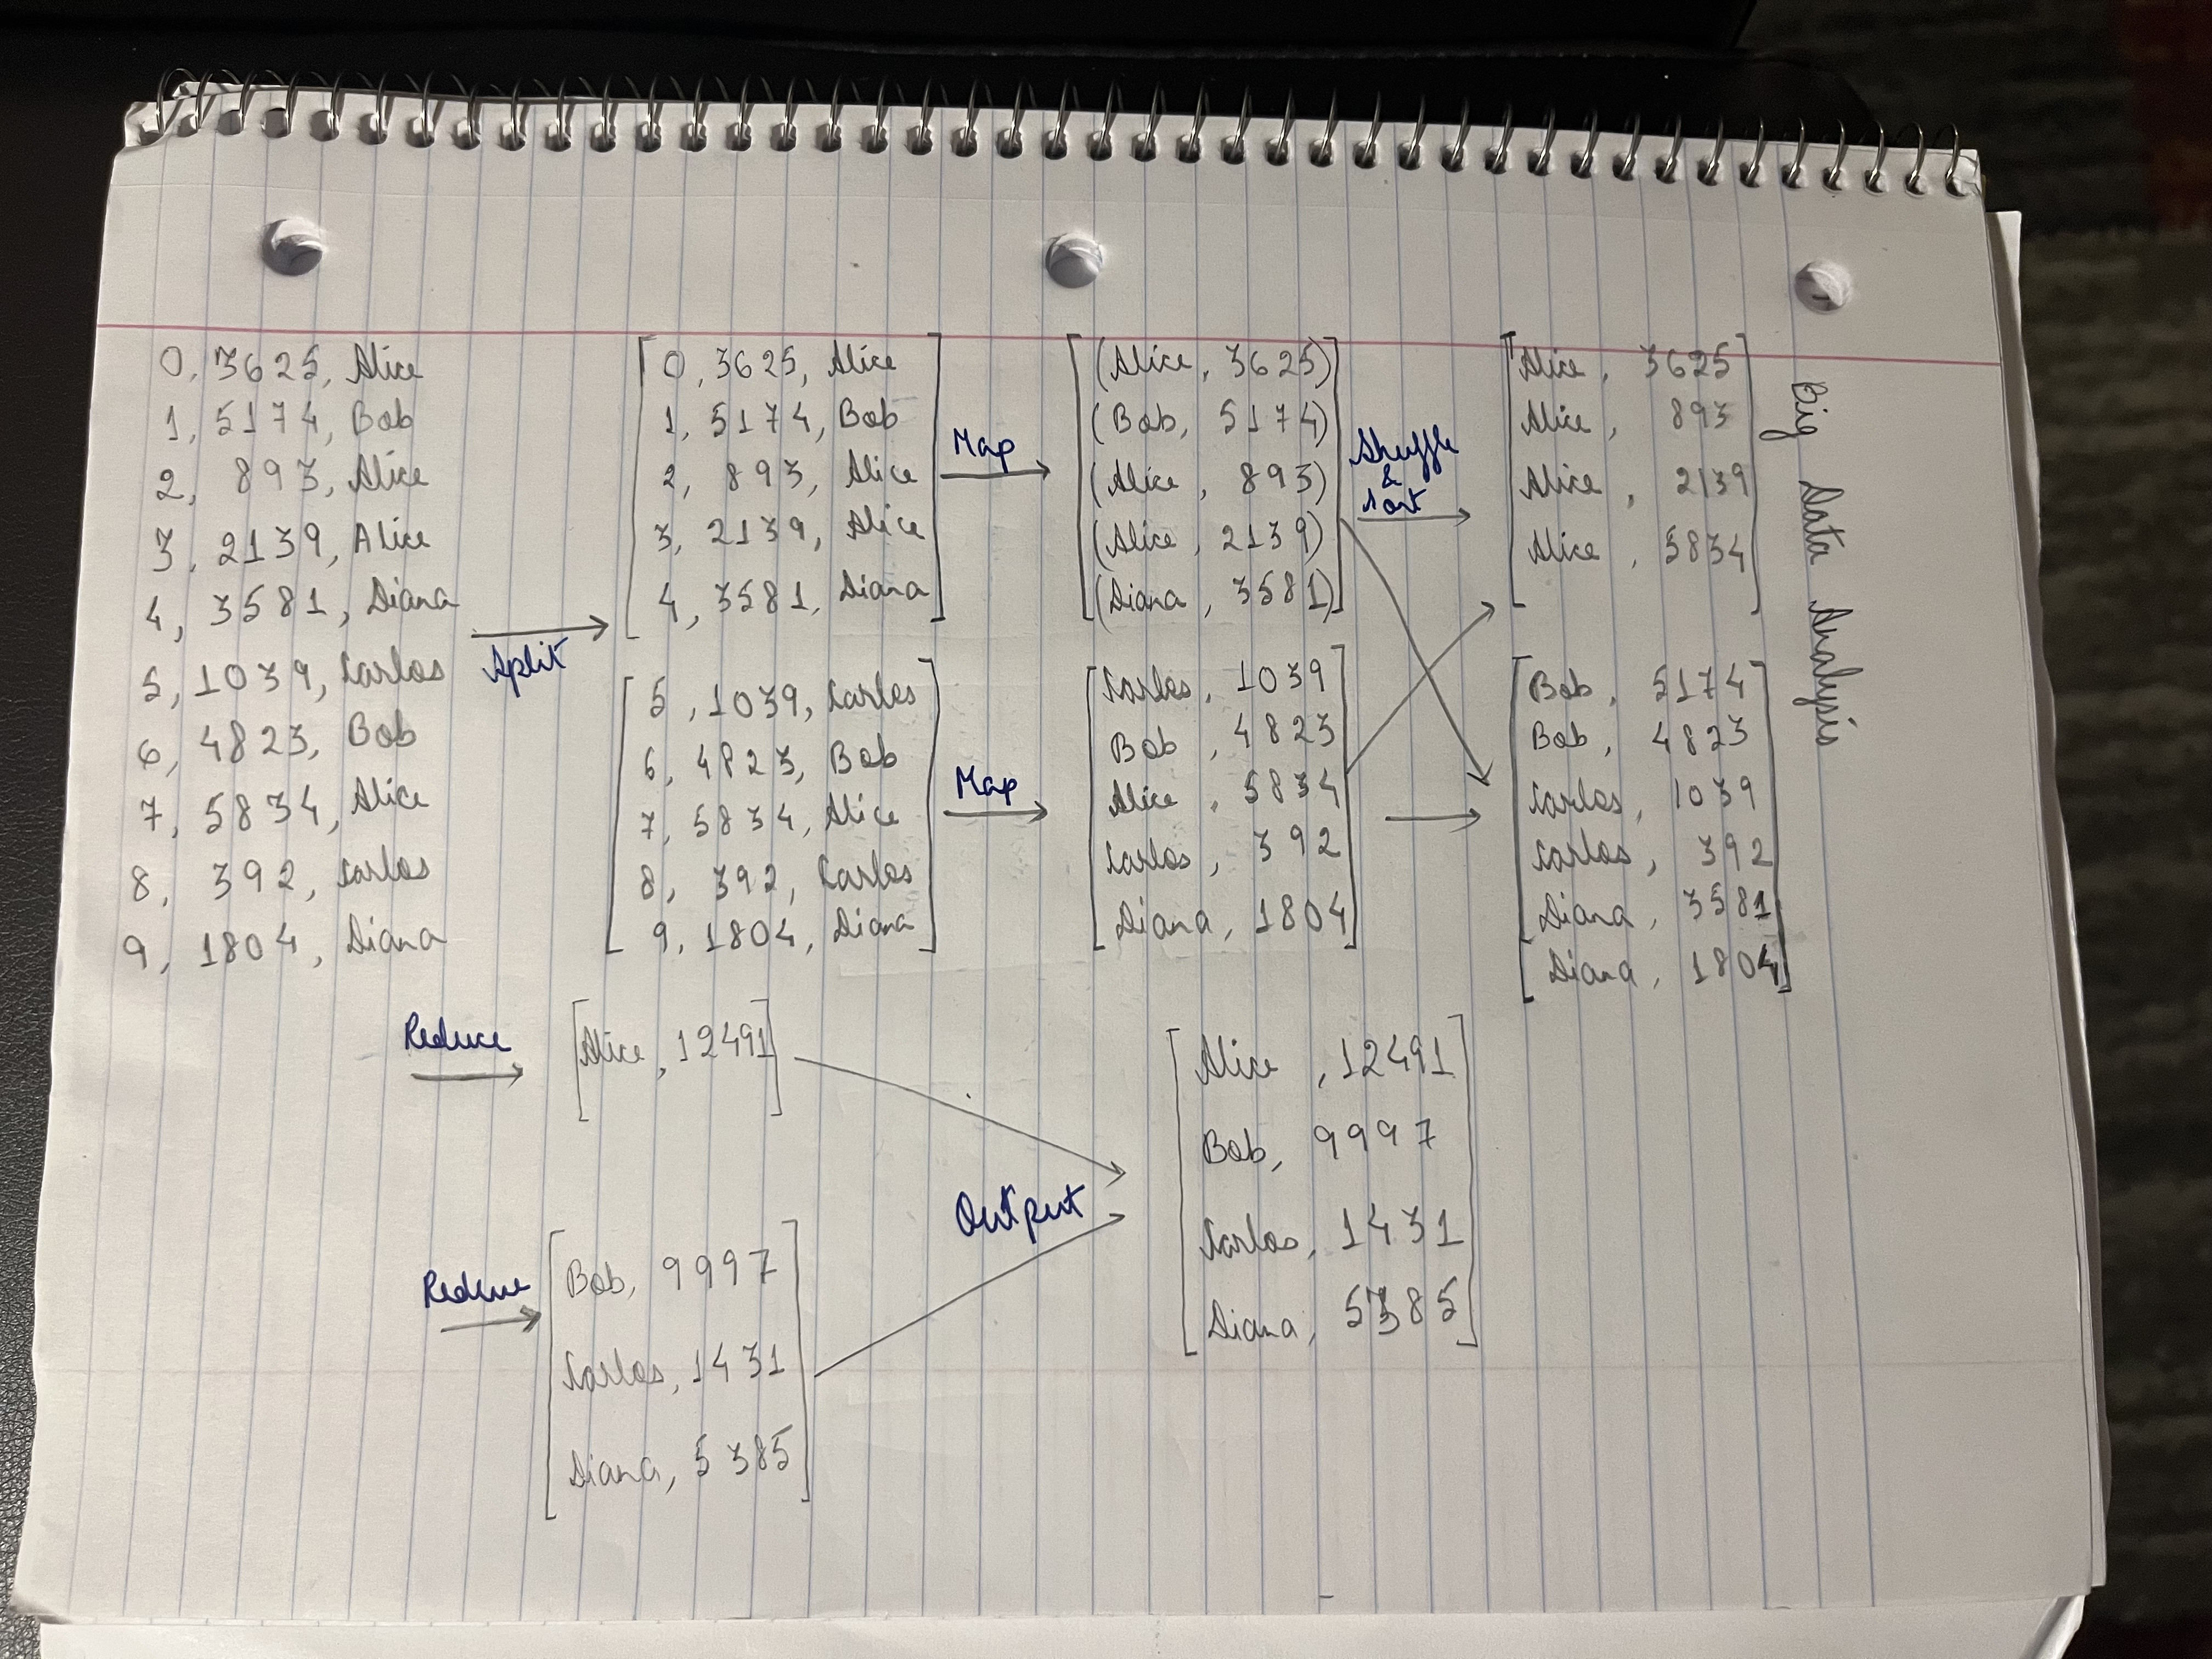 0, 3625, Alice
1, 5174, Bob
2, 893, Alice
3, 2139, Alice
4, 3581, Diana
5, 1039, Carlos
6, 4823, Bob
7, 5834, Alice
8, 392, Carlos
9, 1804, Diana
Split
0, 3625, Alice
1, 5174, Bob
2, 893, Alice
3, 2139, Alice
4, 3581, Diana
5, 1039, Carlos
6, 4823, Bob
7, 5834, Alice
8, 392, Carlos
9, 1804, Diana
Map
Map
(Alice, 3625)
(Bob, 5174)
(Alice, 893)
(Alice, 2139)
(Diana, 3581)
Carlos, 1039
Bob, 4823
Alice, 5834
Carlos, 392
Diana, 1804
Shuffle
&
sort
Alice, 3625
Alice, 893
Alice, 2139
Alice, 5834
Bob, 5174
Bob, 4823
Carlos, 1039
Carlos, 392
Diana, 3581
Diana, 1804
Big Data Analysis
Reduce
Alice, 12491
Reduce
Bob, 9997
Carlos, 1431
Diana, 5385
Output
Alice, 12491
Bob, 9997
Carlos, 1431
Diana, 5385